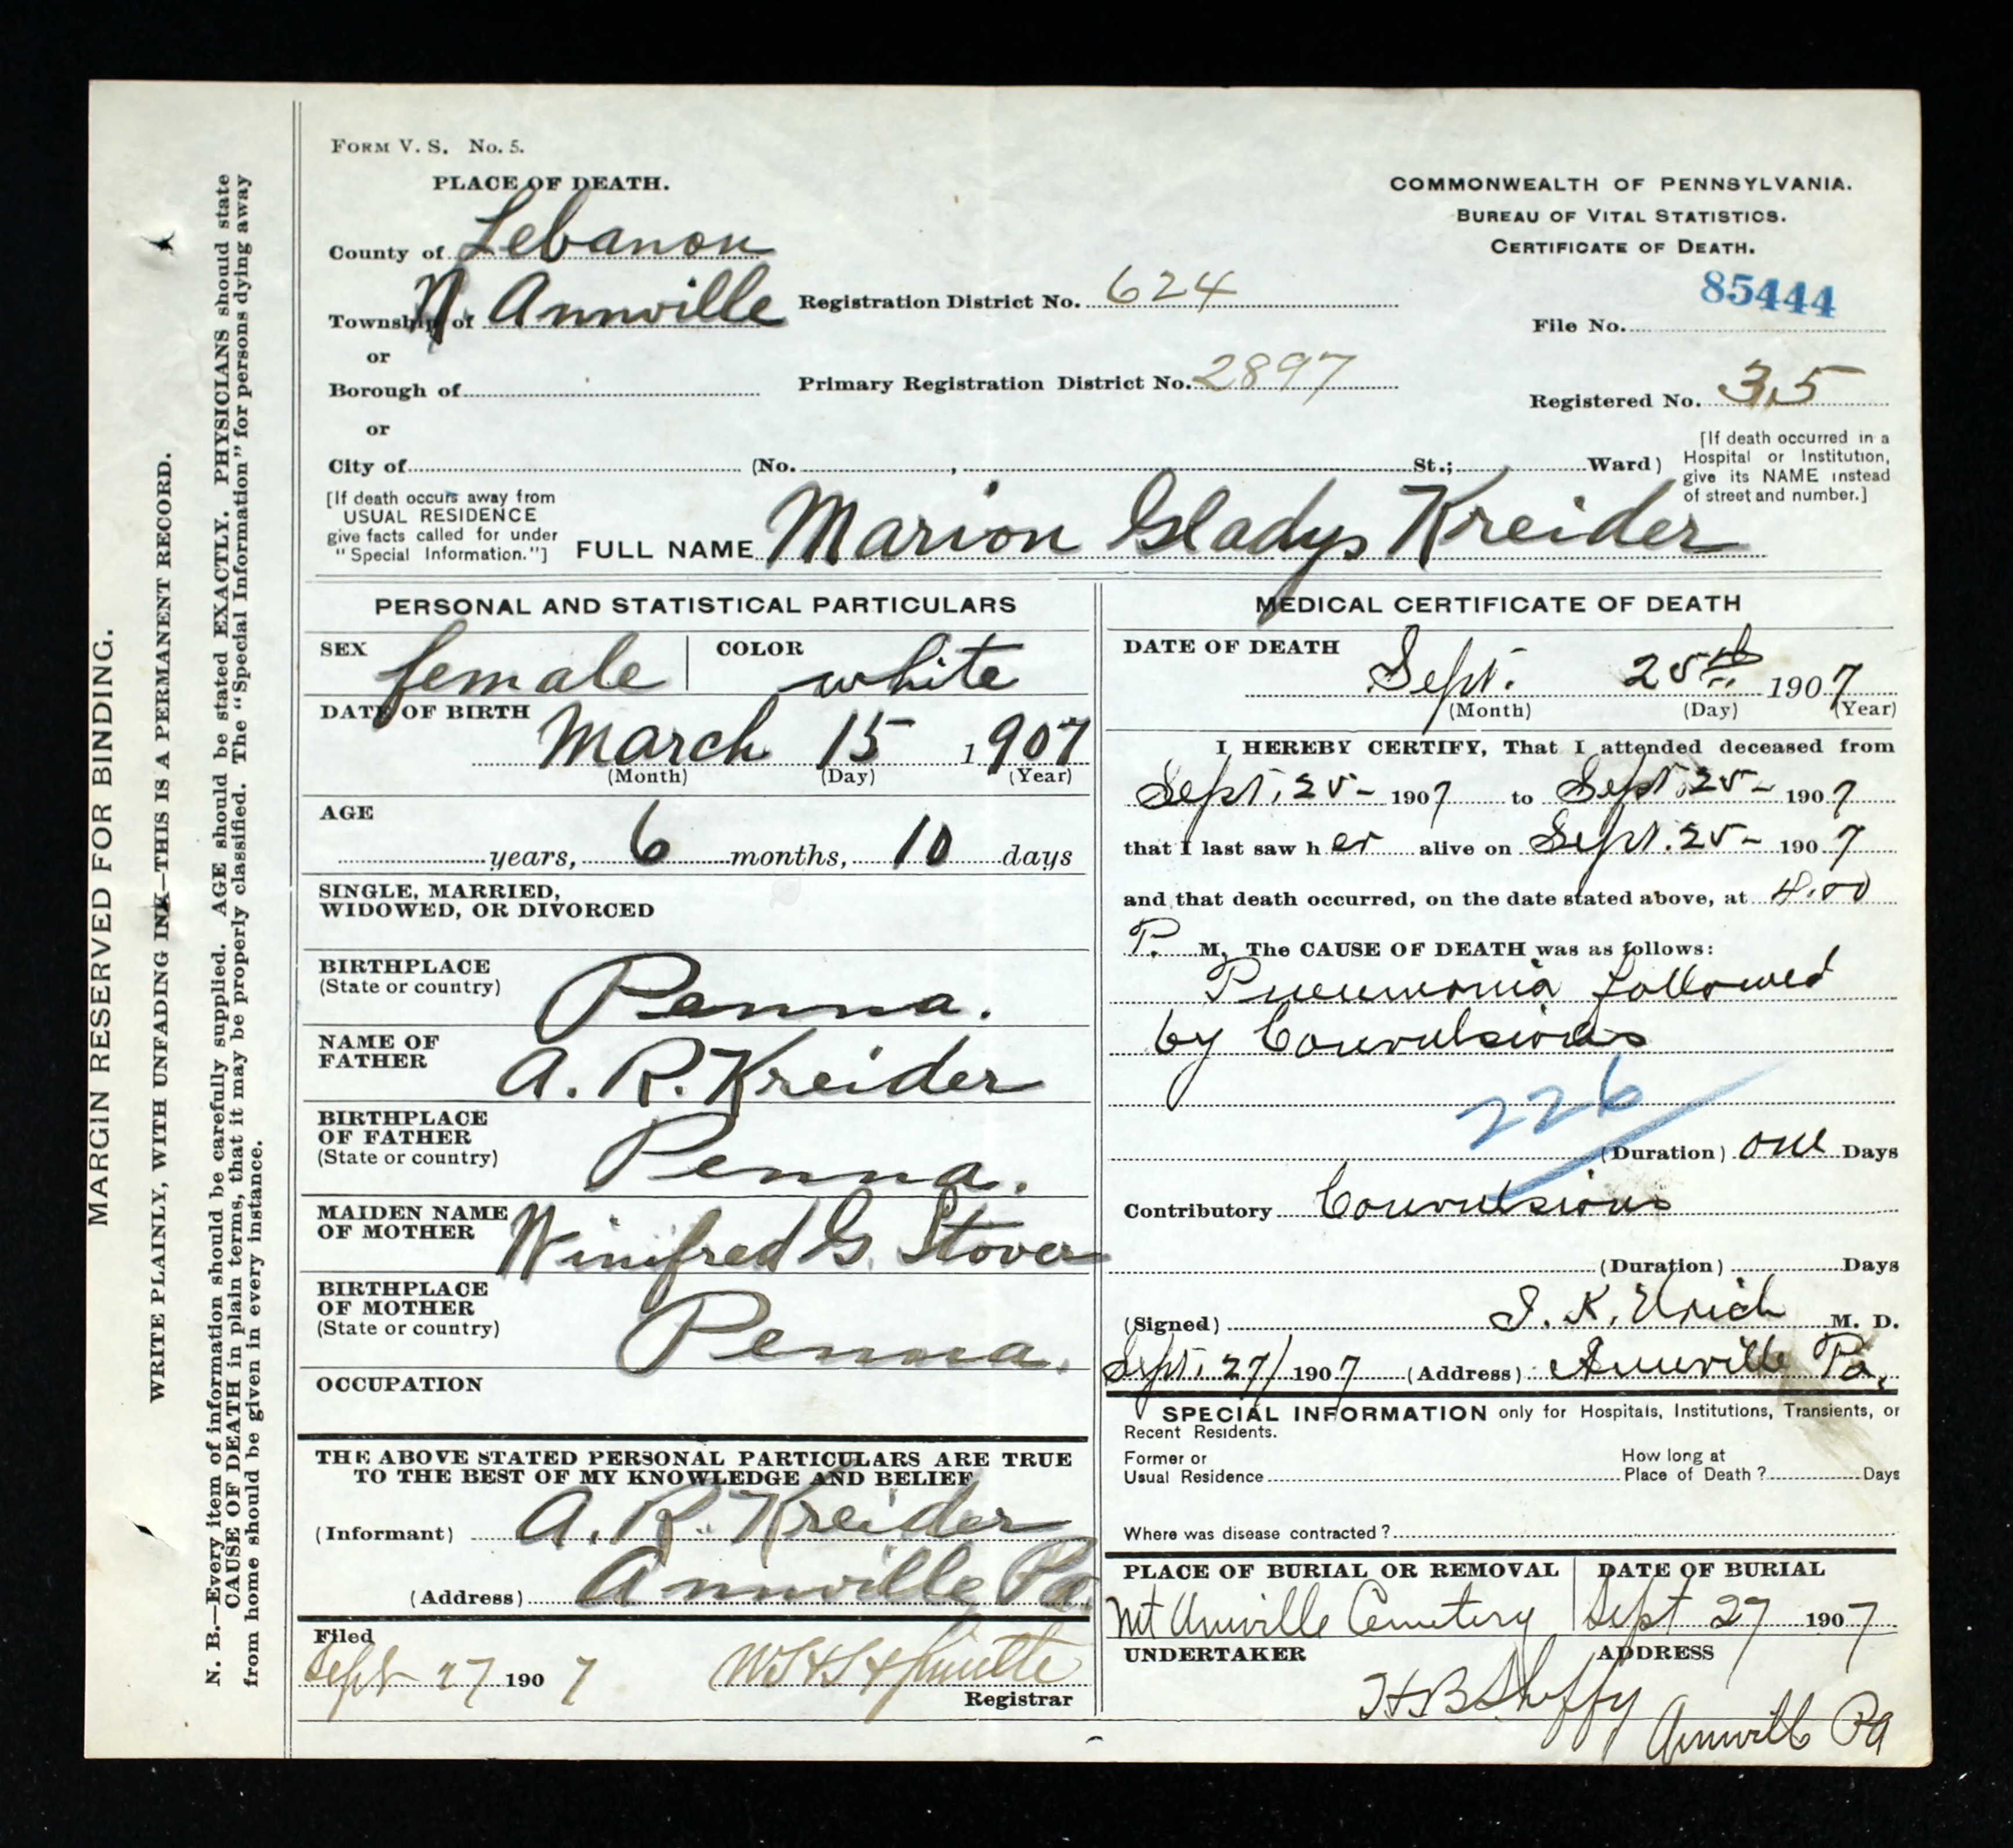 MARGIN RESERVED FOR BINDING.
WRITE PLAINLY, WITH UNFADING INK—THIS IS A PERMANENT RECORD.
N. B.—Every item of information should be carefully supplied. AGE should be stated EXACTLY. PHYSICIANS should state
CAUSE OF DEATH in plain terms, that it may be properly classified. The "Special Information" for persons dying away
from home should be given in every instance.
FORM V. S. No. 5.
PLACE OF DEATH.
County of Lebanon
Township of N. Annville
or
Borough of
or
City of (No. , St.; Ward)
Registration District No. 624
Primary Registration District No. 2897
COMMONWEALTH OF PENNSYLVANIA.
BUREAU OF VITAL STATISTICS.
CERTIFICATE OF DEATH.
85444
File No.
Registered No. 35
[If death occurred in a
Hospital or Institution,
give its NAME instead
of street and number.]
[If death occurs away from
USUAL RESIDENCE
give facts called for under
"Special Information."]
FULL NAME Marion Gladys Kreider
PERSONAL AND STATISTICAL PARTICULARS
SEX female COLOR white
DATE OF BIRTH
March 15 1907
(Month) (Day) (Year)
AGE
years, 6 months, 10 days
SINGLE, MARRIED,
WIDOWED, OR DIVORCED
BIRTHPLACE
(State or country) Penna.
NAME OF
FATHER A. R. Kreider
BIRTHPLACE
OF FATHER
(State or country) Penna.
MAIDEN NAME
OF MOTHER Winifred G. Stover
BIRTHPLACE
OF MOTHER
(State or country) Penna.
OCCUPATION
THE ABOVE STATED PERSONAL PARTICULARS ARE TRUE
TO THE BEST OF MY KNOWLEDGE AND BELIEF
(Informant) A. R. Kreider
(Address) Annville Pa.
Filed
Sept 27 1907
Registrar
MEDICAL CERTIFICATE OF DEATH
DATE OF DEATH
Sept. 25th 1907
(Month) (Day) (Year)
I HEREBY CERTIFY, That I attended deceased from
Sept. 25- 1907 to Sept. 25- 1907
that I last saw her alive on Sept. 25- 1907
and that death occurred, on the date stated above, at 4.00
P. M. The CAUSE OF DEATH was as follows:
Pneumonia followed
by Convulsions
226
(Duration) one Days
Contributory Convulsions
(Duration) Days
(Signed) I. K. Urich M. D.
Sept. 27/ 1907 (Address) Annville Pa.
SPECIAL INFORMATION only for Hospitals, Institutions, Transients, or
Recent Residents.
Former or
Usual Residence
How long at
Place of Death? Days
Where was disease contracted?
PLACE OF BURIAL OR REMOVAL
Mt Annville Cemetery
DATE OF BURIAL
Sept 27 1907
UNDERTAKER
ADDRESS
Annville Pa